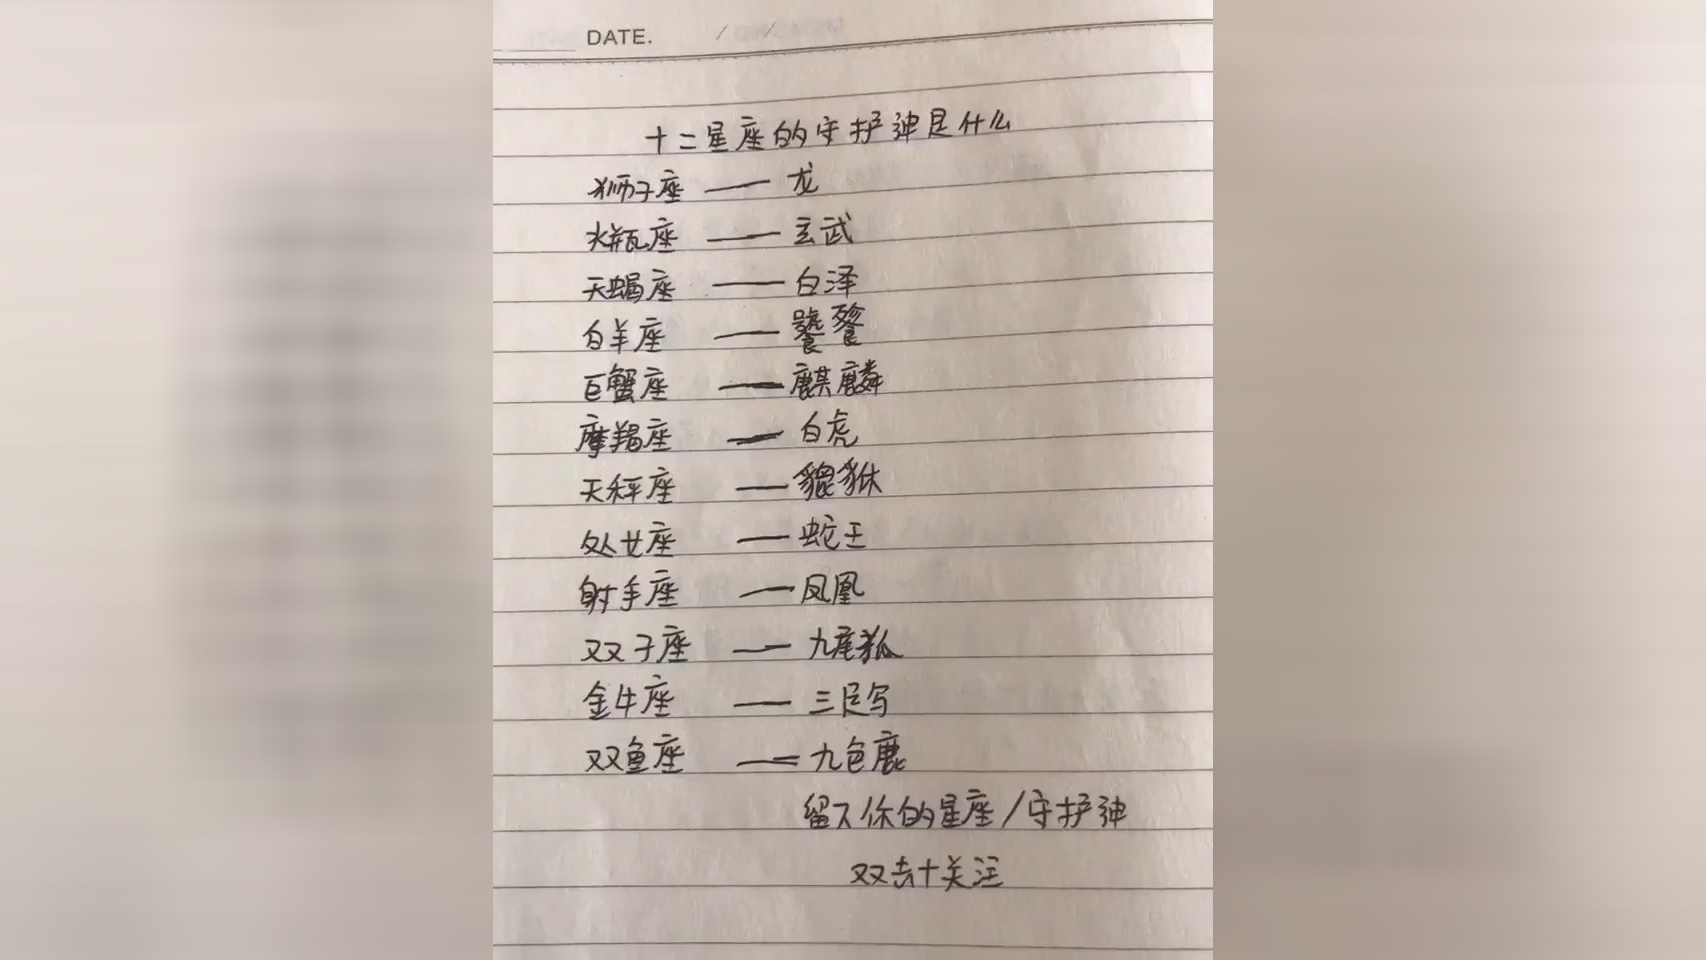 DATE. / /
十二星座的守护神是什么
狮子座 —— 龙
水瓶座 —— 玄武
天蝎座 —— 白泽
白羊座 —— 饕餮
巨蟹座 —— 麒麟
摩羯座 —— 白虎
天秤座 —— 貔貅
处女座 —— 蛇王
射手座 —— 凤凰
双子座 —— 九尾狐
金牛座 —— 三足鸟
双鱼座 —— 九色鹿
留下你的星座/守护神
双击+关注